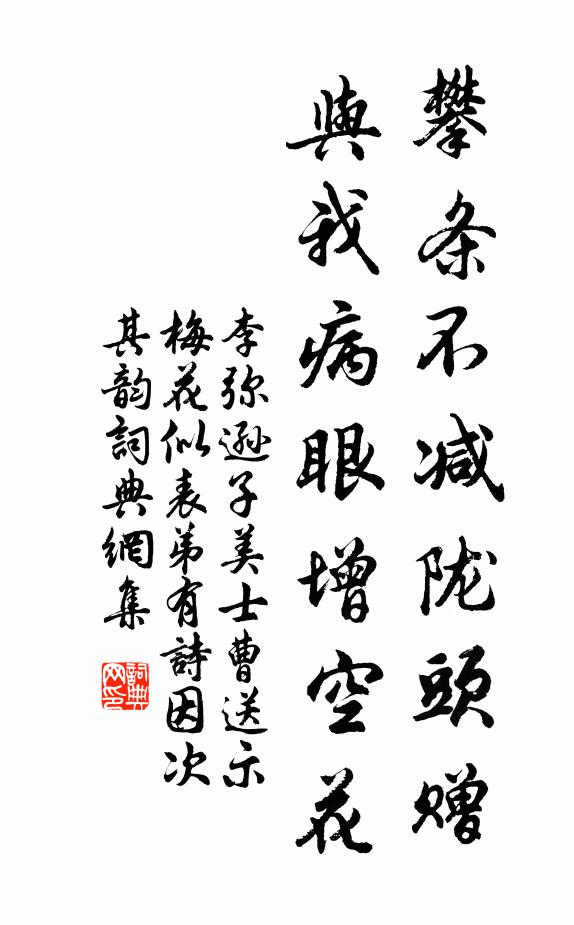 攀条不减陇頭赠
與我病眼增空花
李弥遜子美士曹送示
梅花似表弟有詩因次
其韵詞典網集
詞典网印